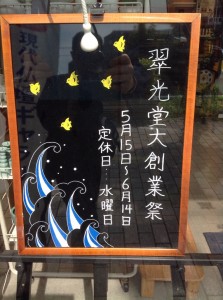 翠光堂大創業祭
5月15日～6月14日
定休日…水曜日